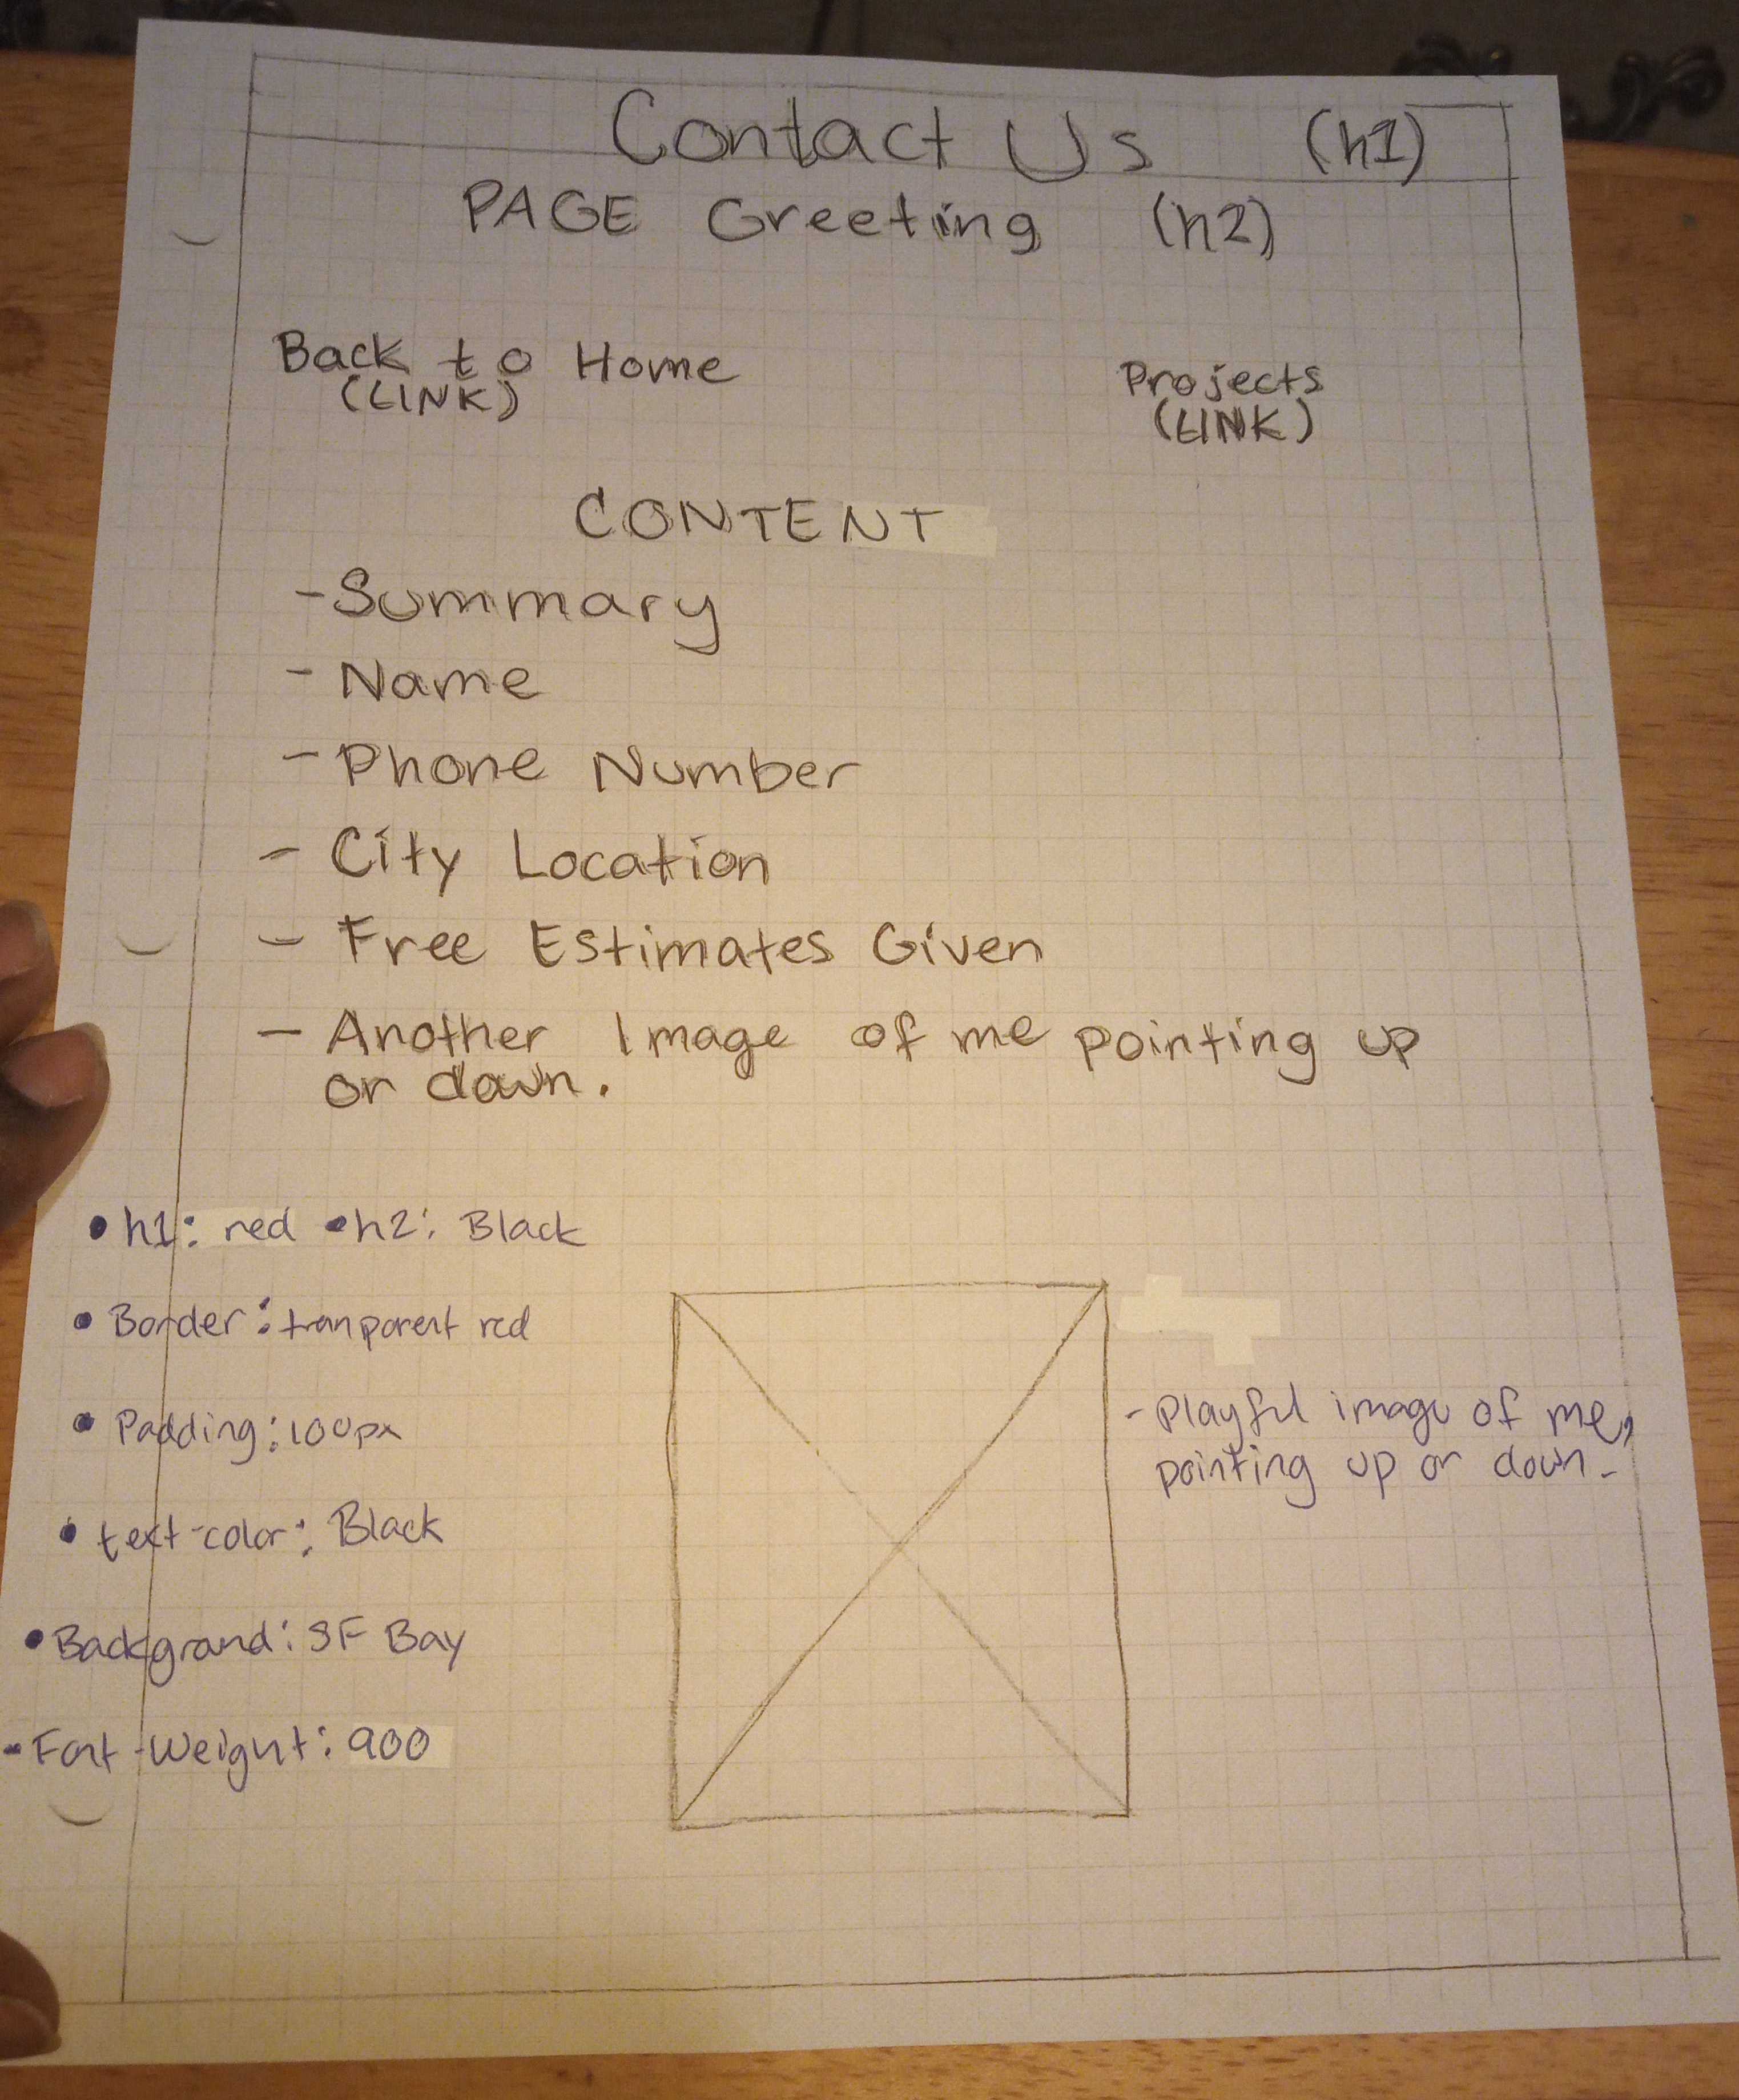 Contact Us (h1)
PAGE Greeting (h2)
Back to Home
(LINK)
Projects
(LINK)
CONTENT
- Summary
- Name
- Phone Number
- City Location
- Free Estimates Given
- Another Image of me pointing up
or down.
• h1: red • h2: Black
• Border: tranparent red
• Padding: 100px
• text-color: Black
• Backgrand: SF Bay
- Font-Weight: 900
- Playful image of me,
pointing up or down.